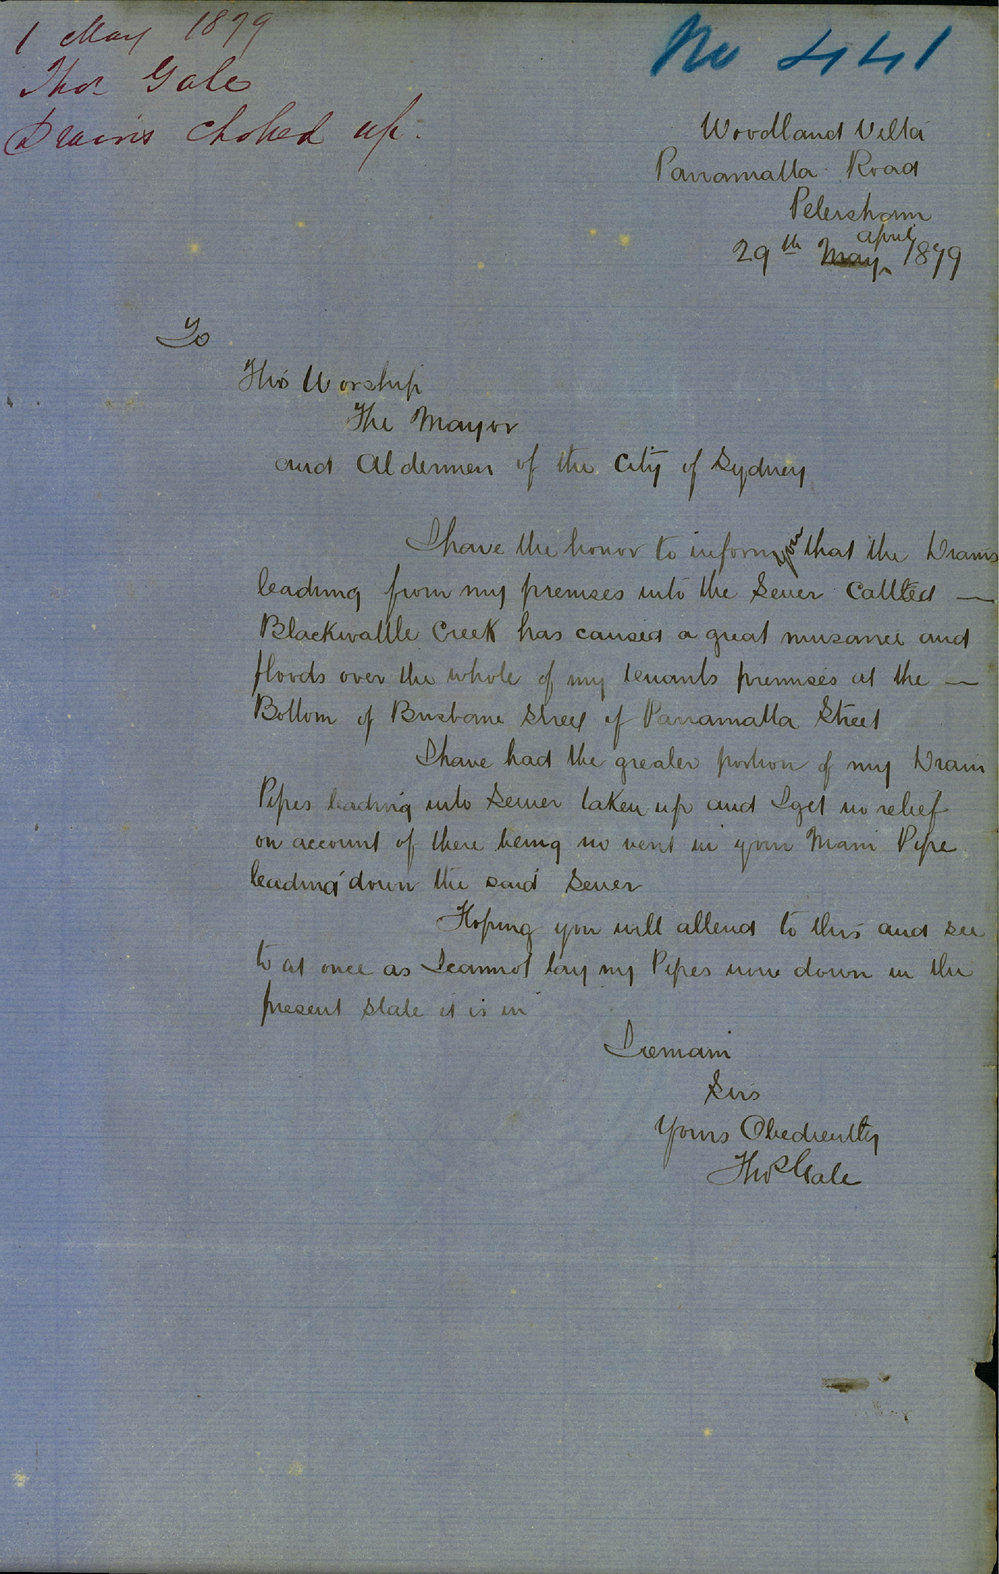 1 May 1879
Thos Gale
Drains choked up.
No 441
Woodland Villa
Parramatta Road
Petersham
29th May April 1879
To
His Worship
The Mayor
and Aldermen of the City of Sydney
I have the honor to inform you that the Drains
leading from my premises into the Sewer Callled —
Blackwattle Creek has caused a great nuisance and
floods over the whole of my tenants premises at the —
Bottom of Brisbane Street of Parramatta Street
I have had the greater portion of my Drain
Pipes leading into Sewer taken up and I get no relief
on account of there being no vent in your Main Pipe
leading down the said Sewer
Hoping you will attend to this and see
to at once as I cannot lay my Pipes down in the
present state it is in
I remain
Sirs
Yours Obediently
Thos Gale